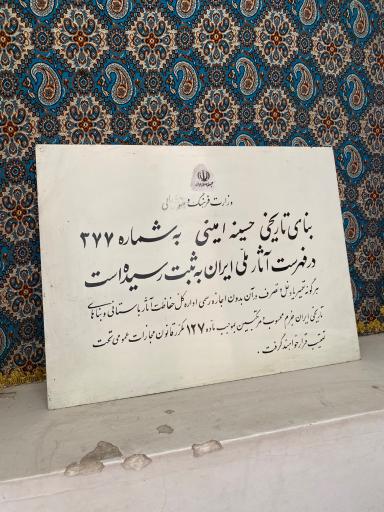 وزارت فرهنگ و
بنای تاریخی حسینه امینی به شماره ۳۷۷
در فهرست آثار ملی ایران به ثبت رسیده است
هرگونه تغییر و دخل و تصرف در آن بدون اجازه رسمی اداره کل حفاظت آثار باستانی و بناهای
تاریخی ایران جرم محسوب و مرتکبین بموجب ماده ۱۲۷ مکرر قانون مجازات عمومی تحت
تعقیب قرار خواهند گرفت.